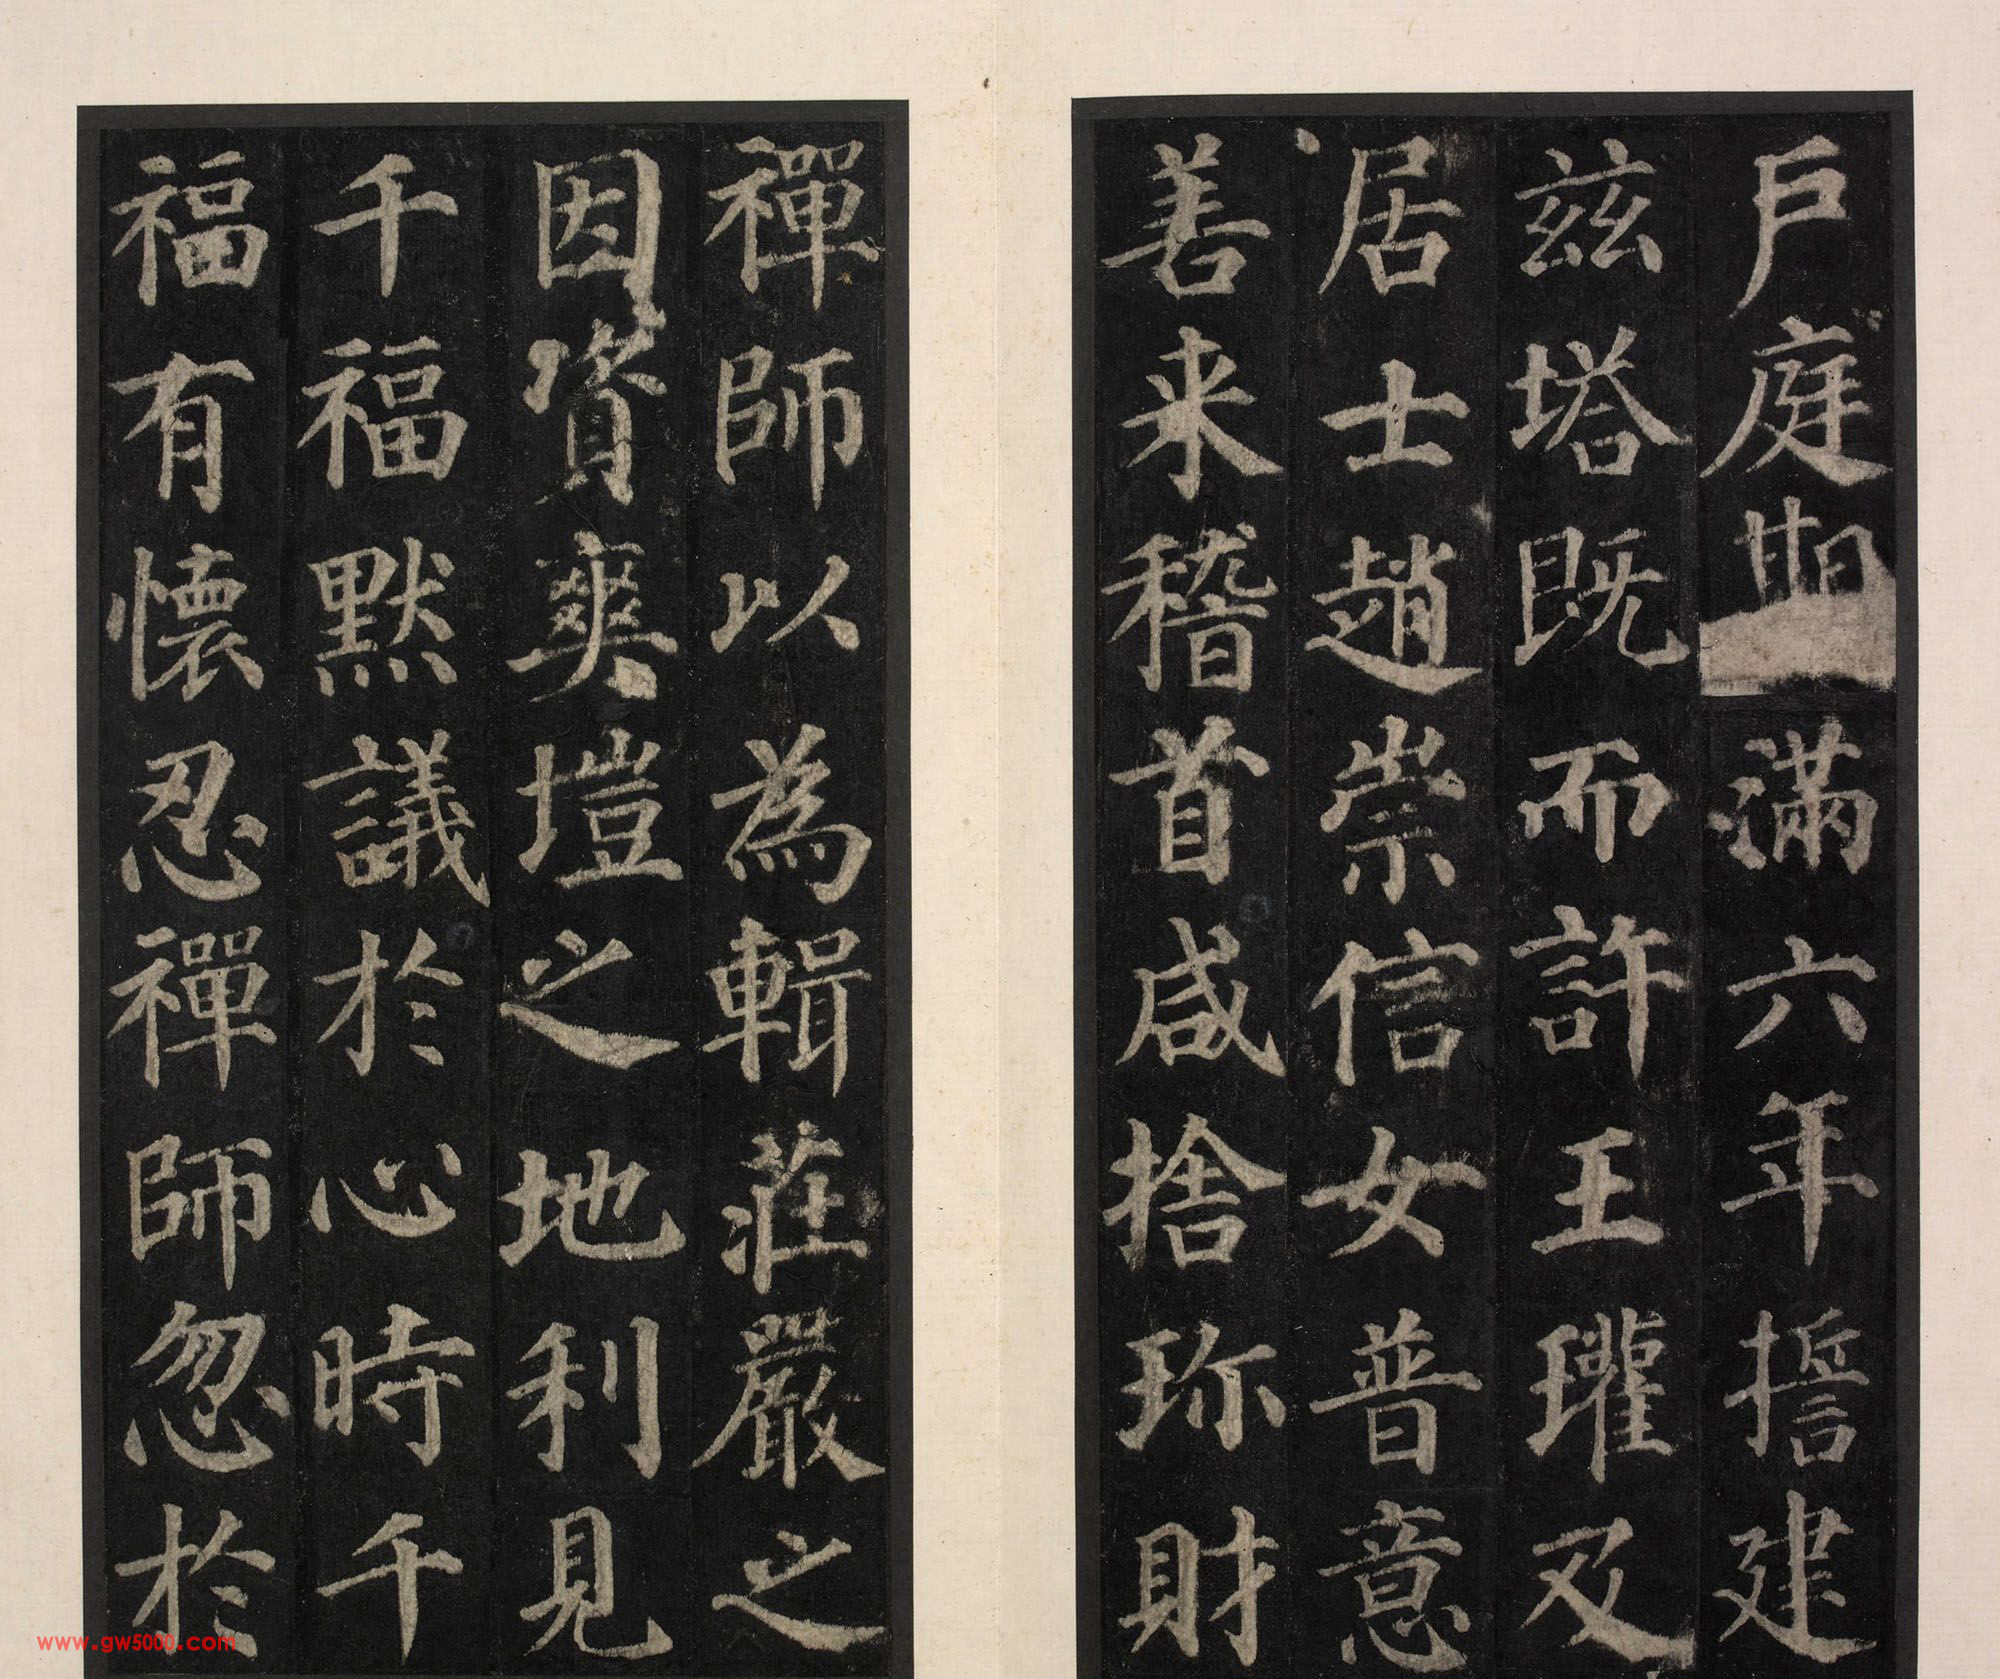 戶庭期滿六年擔建
茲塔既而許王瓘及
居士趙崇信女普意
善来稽首咸捨珎財
禪師以為輯莊嚴之
因資爽塏之地利見
千福默議於心時千
福有懷忍禪師忽於
www.gw5000.com